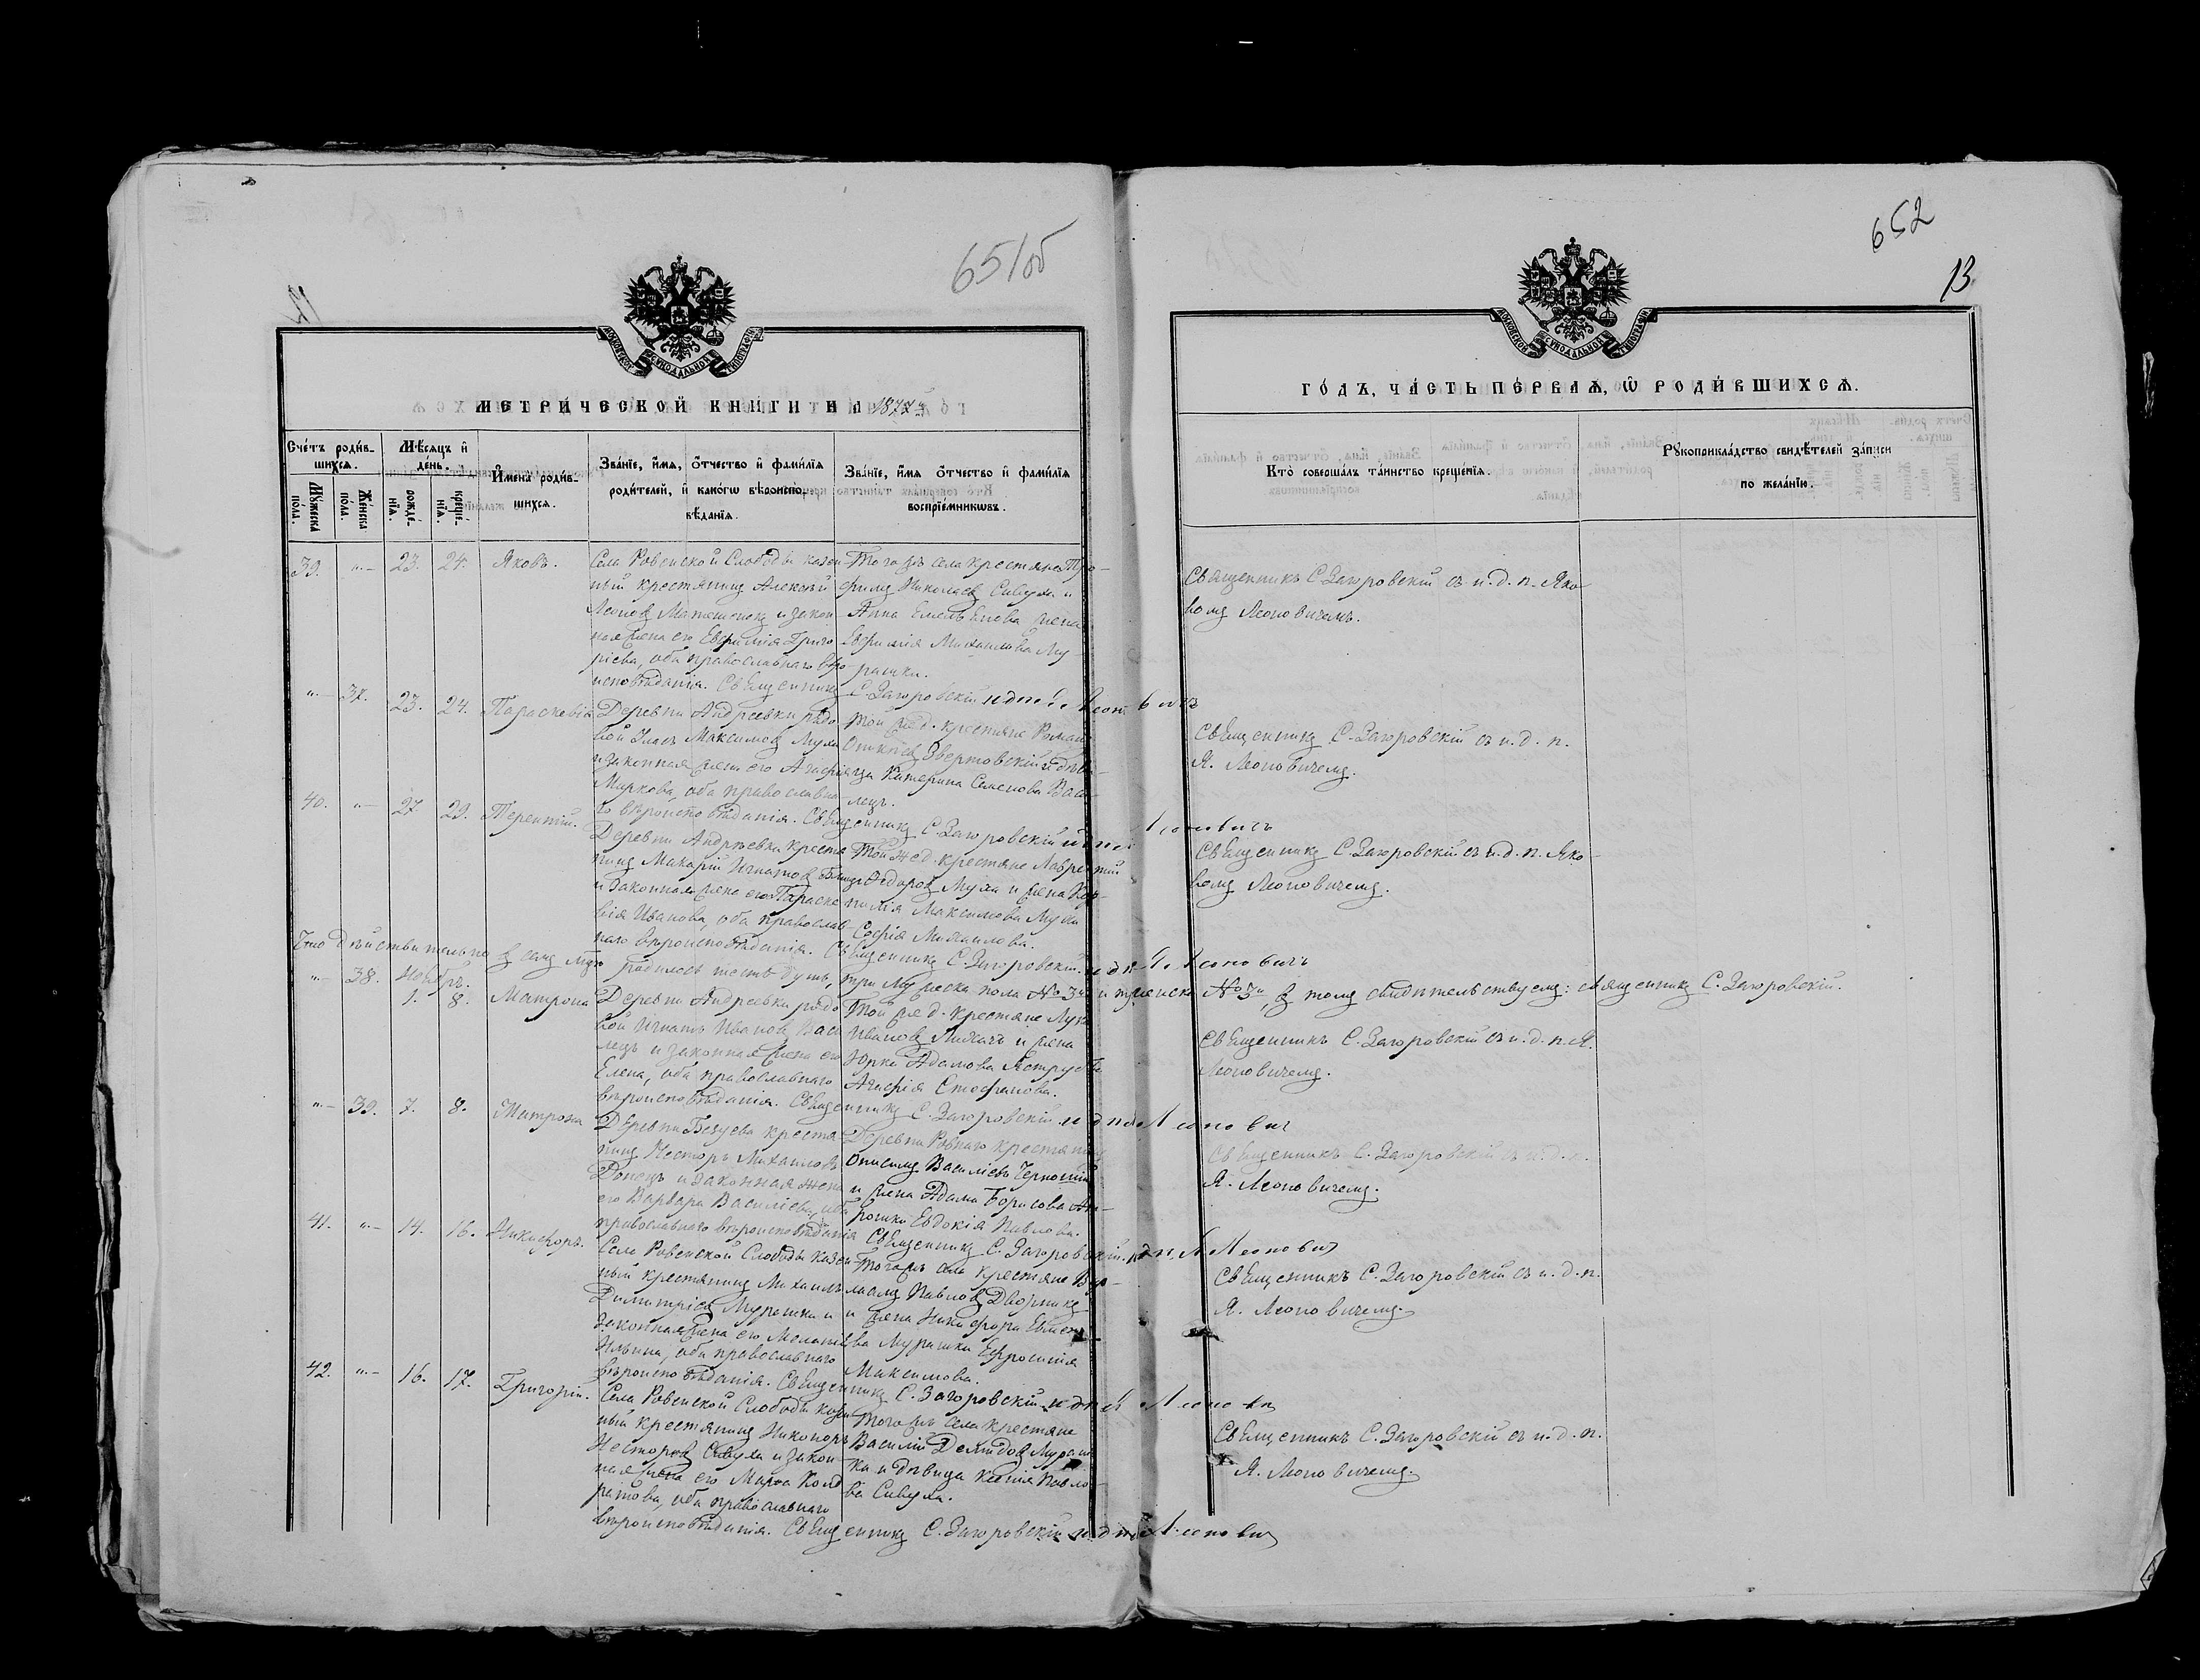 651об
652
13
МЕТРИЧЕСКОЙ КНИГИ НА 1877й
ГО́ДЪ, ЧА́СТЬ ПЕ́РВАѦ, Ѡ҆ РОДИ́ВШИХСѦ.
Сче́тъ роди́в-
шихсѧ.
Мѣ́сѧцъ и҆
де́нь.
И҆мена̀ роди́в-
шихсѧ.
Зва́нїе, и҆́мѧ, ѻ҆́тчество и҆ фами́лїѧ
роди́телей, и҆ како́гѡ вѣроиспо-
вѣ́данїѧ.
Зва́нїе, и҆́мѧ ѻ҆́тчество и҆ фами́лїѧ
воспрїе́мникѡвъ.
Мꙋ́жеска
по́ла.
Же́нска
по́ла.
рожде́-
нїѧ.
креще́-
нїѧ.
Кто̀ соверша́лъ та́инство креще́нїѧ.
Рꙋкоприкла́дство свидѣ́телей за́писи
по жела́нїю.
39. "- 23. 24. Яковъ.
Села Ровенской Слободы казен-
ный крестянинъ Алексѣй
Леоновъ и закон-
ная жена его Евфимія Григо-
ріева, оба православнаго вѣро-
исповѣданія. Священникъ С. Загоровскій
Тогожъ села крестяне Тро-
фимъ Николаевъ Сивуха и
Анна Емельянова жена
Евфимія Михаилова Му-
рашки.
Священникъ С. Загоровскій съ и. д. п. Яко-
вомъ Леоновичемъ.
"- 37. 23. 24. Параскевія
Деревни Андреевки рядо-
вой Максимовъ Муха
и законная жена его Агафія
Маркова, оба православна-
го вѣроисповѣданія. Священникъ С. Загоровскій и д п Леоновичъ
Той жед. крестяне Роман
Звертовскій и дѣви-
ца Катерина Семенова Васи-
лецъ.
Священникъ С. Загоровскій съ и. д. п.
Я. Леоновичемъ.
40. "- 27. 29. Терентій.
Деревни Андреевки крестя-
нинъ Макарій Игнатовъ
и законная жена его Параске-
вія Иванова, оба православ-
наго вѣроисповѣданія. Священникъ С. Загоровскій и д п Я. Леоновичъ
Той жед. крестяне Лаврентій
Федоровъ Муха и жена
Максимова Мухи
Софія Михаилова.
Священникъ С. Загоровскій съ и. д. п. Яко-
вомъ Леоновичемъ.
Что дѣйствительно въ семъ мцѣ родилось шесть душъ, три мужеска пола №3й и женска №3й, въ томъ свидѣтельствуемъ: священникъ С. Загоровскій.
Ноябрь.
"- 38. 1. 8. Матрона
Деревни Андреевки рядо-
вой Игнатъ Ивановъ Васи-
лецъ и законная жена его
Елена, оба православнаго
вѣроисповѣданія. Священникъ С. Загоровскій и д п Я Леоновичъ
Той жед. крестяне Лука
Ивановъ Лихачъ и жена
Юрка Адамова
Агафія Стефанова.
Священникъ С. Загоровскій съ и. д. п. Я.
Леоновичемъ.
"- 39. 7. 8. Матрона
Деревни Безуева крестя-
нинъ Несторъ Михаиловъ
Донецъ и законная жена
его Варвара Василіева, оба
православнаго вѣроисповѣданія Священникъ С. Загоровскій. и д п. Я Леоновичъ
Деревни Ровнаго крестянинъ
Онисимъ Василіевъ
и жена Адама Борисова
Евдокія Павлова.
Священникъ С. Загоровскій съ и. д. п.
Я. Леоновичемъ.
41. "- 14. 16. Никифоръ.
Села Ровенской Слободы казен-
ный крестянинъ Михаилъ
Димитріевъ Мурашка и
законная жена его Меланія
Ильина, оба православнаго
вѣроисповѣданія. Священникъ С. Загоровскій и д п Я Леонович
Тогожъ села крестяне Вар-
ламъ Павловъ Дворникъ
и жена Никифора
Мурашки Ефросинія
Максимова.
Священникъ С. Загоровскій съ и. д. п.
Я. Леоновичемъ.
42. "- 16. 17. Григорій.
Села Ровенской Слободы казен-
ный крестянинъ Никаноръ
Несторовъ Сивуха и закон-
ная жена его Марфа Конд-
ратова, оба православнаго
вѣроисповѣданія. Священникъ С. Загоровскій и д п Я Леонович
Тогожъ села крестяне
Василій Демидовъ Мураш-
ка и дѣвица Ксенія Павло-
ва Сивуха.
Священникъ С. Загоровскій съ и. д. п.
Я. Леоновичемъ.